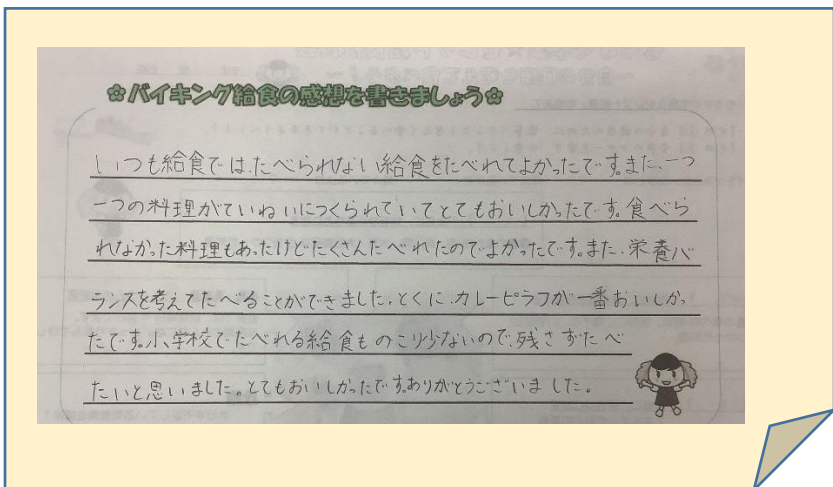 ✿バイキング給食の感想を書きましょう✿
いつも給食では、たべられない給食をたべれてよかったです。また、一つ
一つの料理がていねいにつくられていてとてもおいしかったです。食べら
れなかった料理もあったけどたくさんたべれたのでよかったです。また、栄養バ
ランスを考えてたべることができました。とくに、カレーピラフが一番おいしかっ
たです。小学校でたべれる給食ものこり少ないので、残さずたべ
たいと思いました。とてもおいしかったです。ありがとうございました。